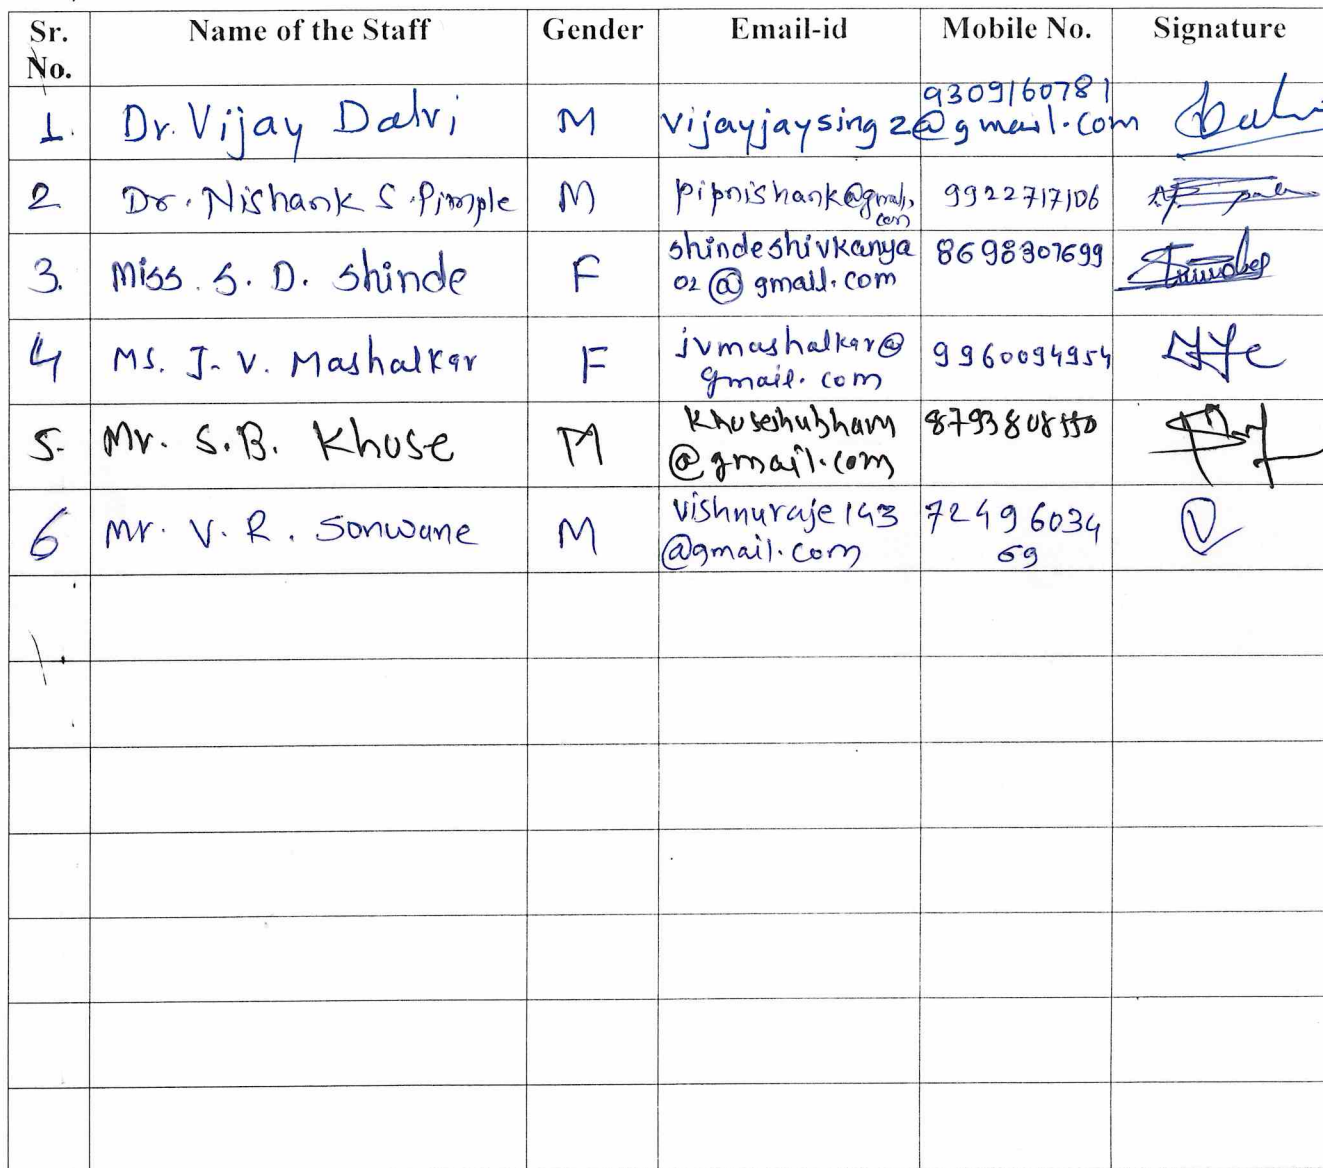 Sr. No. Name of the Staff Gender Email-id Mobile No. Signature
1. Dr. Vijay Dalvi M vijayjaysing2@gmail.com 9309160781
2 Dr. Nishank S. Pimple M pipnishank@gmail.com 9922717106
3. Miss. S. D. Shinde F shindeshivkanya02@gmail.com 8698307699
4 Ms. J. V. Mashalkar F jvmashalkar@gmail.com 9960094954
5. Mr. S.B. Khuse M khuseshubham@gmail.com
6 Mr. V. R. Sonwane M vishnuraje143@gmail.com 7249603469